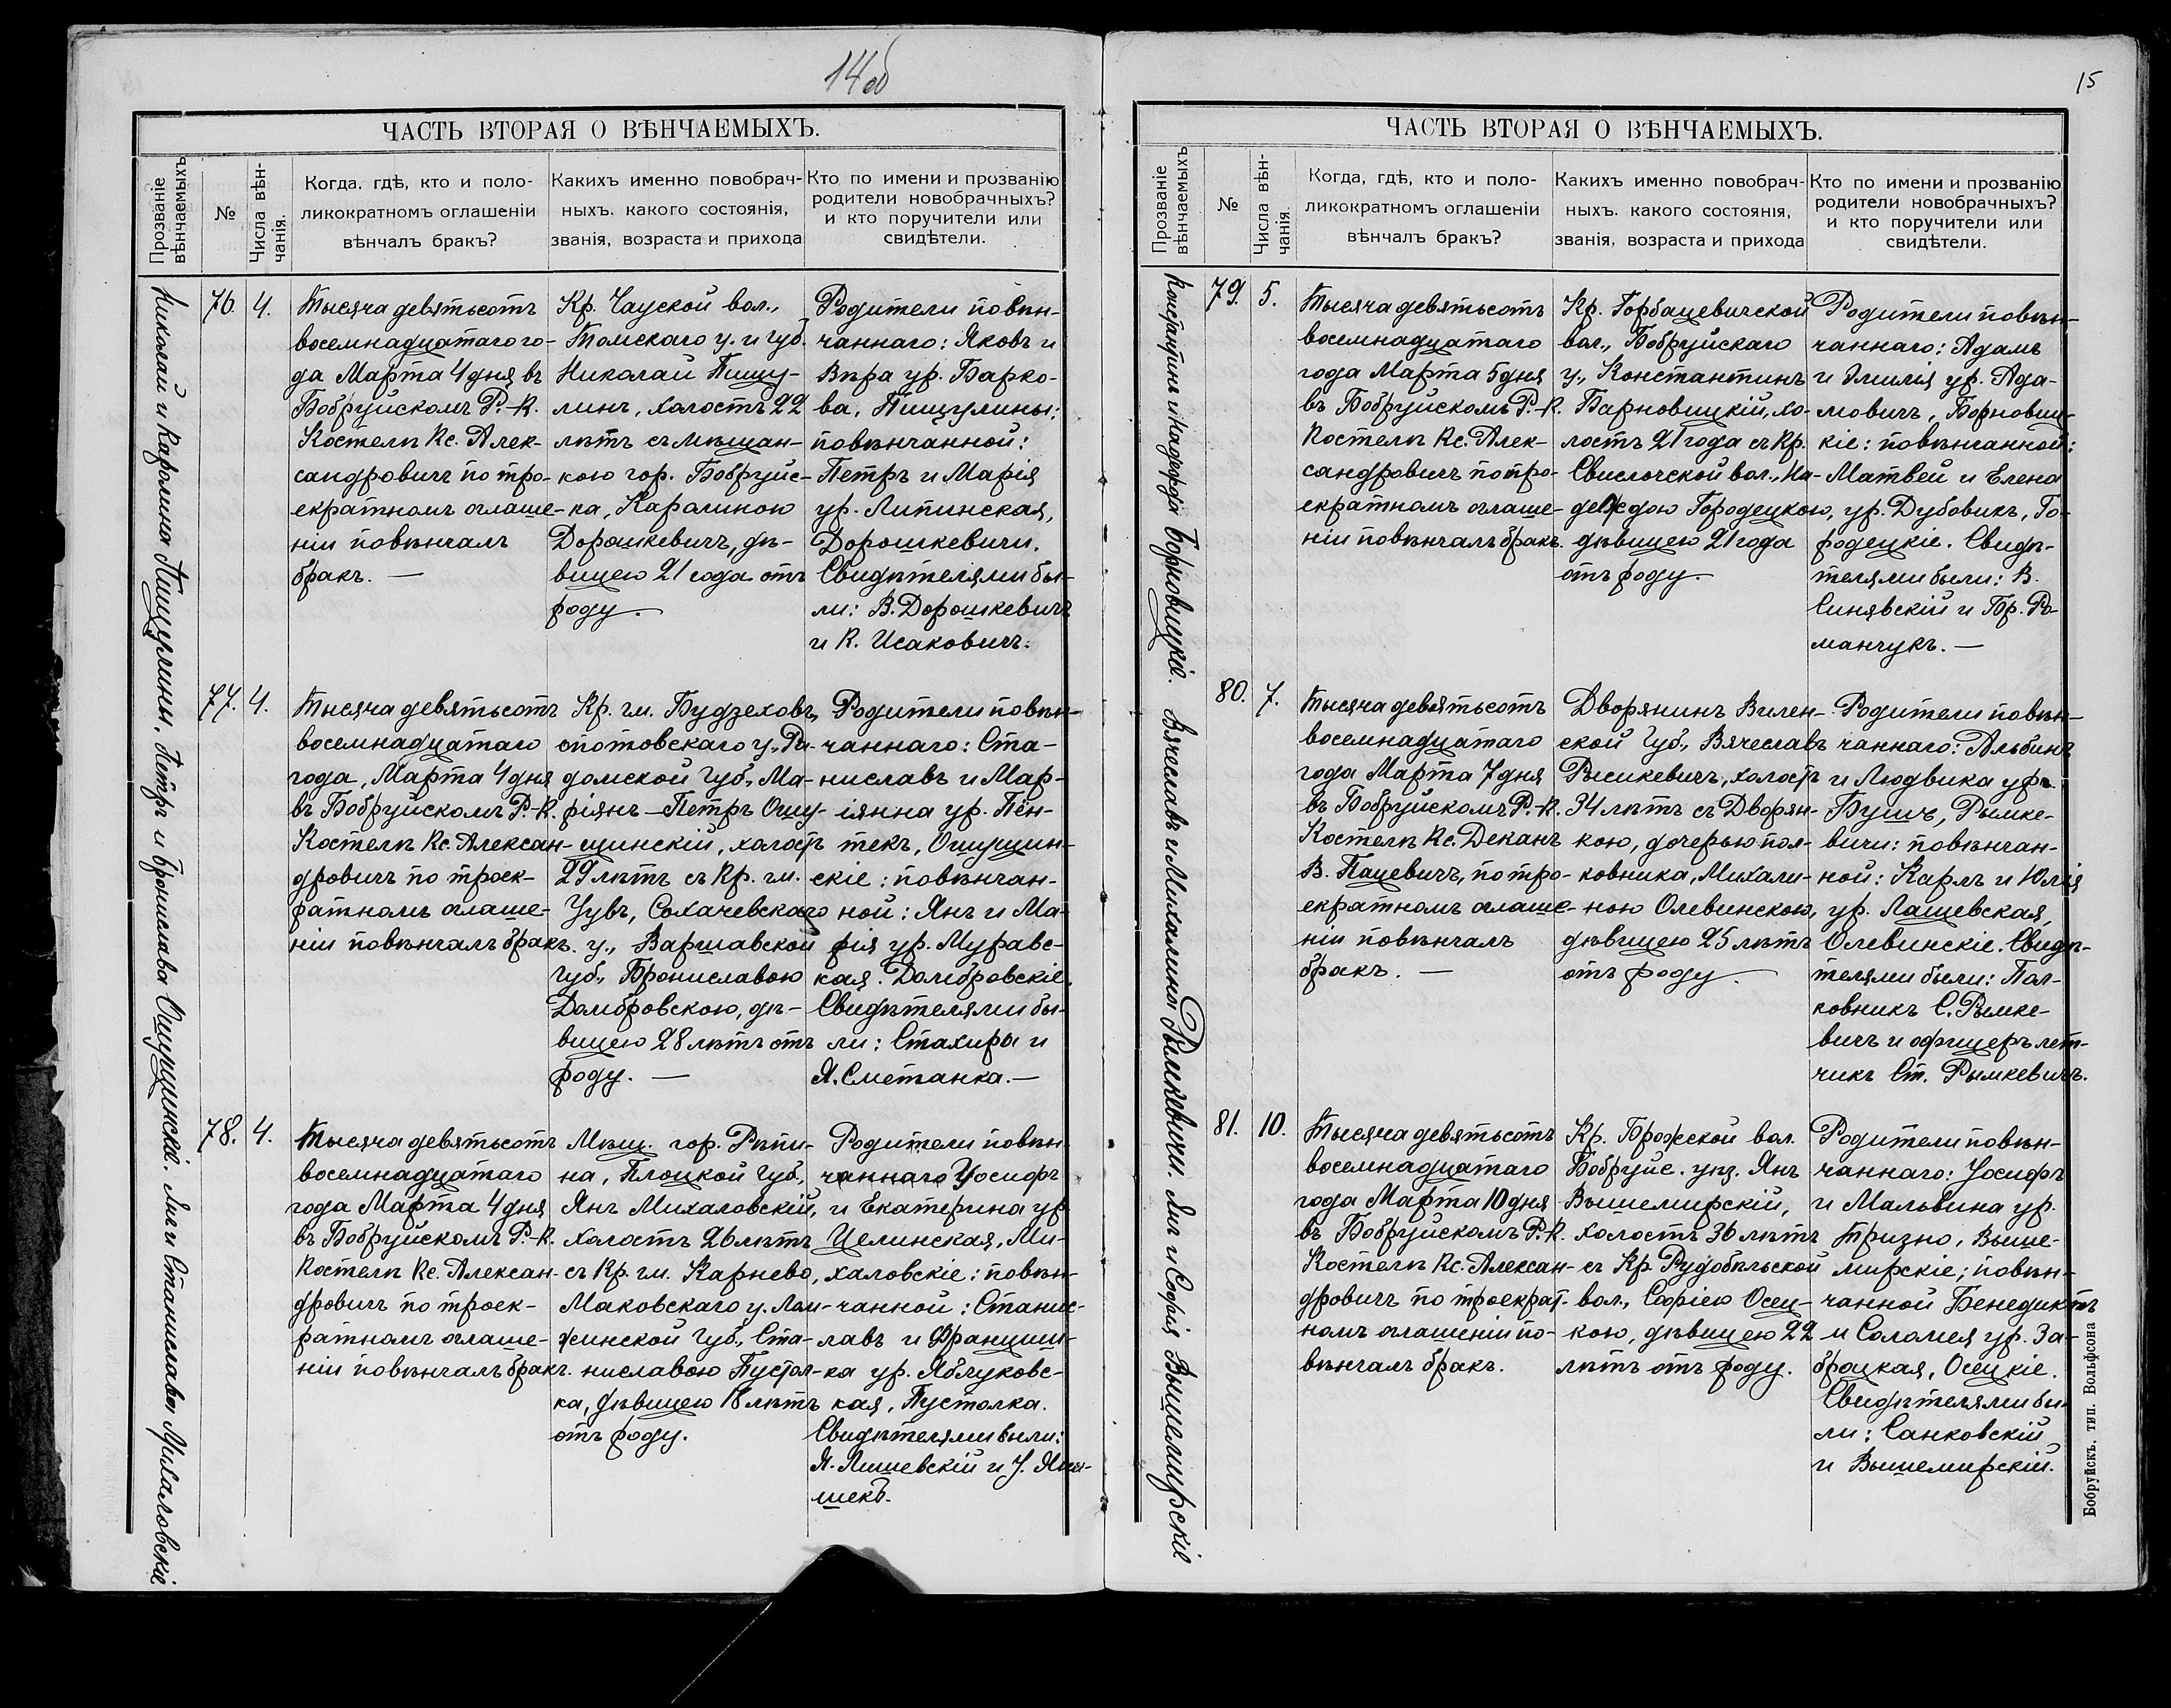 14об
ЧАСТЬ ВТОРАЯ О ВѢНЧАЕМЫХЪ.
Прозваніе
вѣнчаемыхъ
№
Числа вѣн-
чанія.
Когда, гдѣ, кто и поло-
ликократномъ оглашеніи
вѣнчалъ бракъ?
Какихъ именно повобрач-
ныхъ, какого состоянія,
званія, возраста и прихода
Кто по имени и прозванію
родители новобрачныхъ?
и кто поручители или
свидѣтели.
Николай и Каролина Пищулины.
76.
4.
Тысяча девятьсотъ
восемнадцатаго го-
да Марта 4 дня въ
Бобруйскомъ Р.-К.
Костелѣ Кс. Алек-
сандровичъ по тро-
екратномъ оглаше-
ніи повѣнчалъ
бракъ. —
Кр. Чауской вол.,
Томскаго у. и губ.
Николай Пищу-
линъ, холостъ 22
лѣтъ съ мѣщан-
кою гор. Бобруйс-
ка, Каролиною
Дорошкевичъ, дѣ-
вицею 21 года отъ
роду.
Родители повѣн-
чаннаго: Яковъ и
Вѣра ур. Барко-
ва, Пищулины:
повѣнчанной:
Петръ и Марія
ур. Липинская,
Дорошкевичи.
Свидѣтелями бы-
ли: В. Дорошкевичъ
и К. Исаковичъ.
Петръ и Бронислава Ошущинскіе.
77.
4.
Тысяча девятьсотъ
восемнадцатаго
года, Марта 4 дня
въ Бобруйскомъ Р.-К.
Костелѣ Кс. Алексан-
дровичъ по троек-
ратномъ оглаше-
ніи повѣнчалъ бракъ.
Кр. гм. Будзеховъ,
опотовскаго у., Ра-
домской Губ., Ма-
ріянъ—Петръ Ошу-
щинскій, холостъ
29 лѣтъ съ Кр. гм.
Чувъ, Сохачевскаго
у., Варшавской
губ., Брониславою
Домбровскою, дѣ-
вицею 28 лѣтъ отъ
роду. —
Родители повѣн-
чаннаго: Ста-
ниславъ и Мар-
іянна ур. Пён-
текъ, Ошущин-
скіе: повѣнчан-
ной: Янъ и Ма-
рія ур. Муравс-
кая. Домбровскіе.
Свидѣтелями бы-
ли: Стахира и
Я. Сметанка. —
Янъ и Станислава Михаловскіе
78.
4.
Тысяча девятьсотъ
восемнадцатаго
года Марта 4 дня
въ Бобруйскомъ Р.-К.
Костелѣ Кс. Алексан-
дровичъ по троек-
ратномъ оглаше-
ніи повѣнчалъ бракъ.
Мѣщ. гор. Рыпи-
на, Плоцкой Губ.,
Янъ Михаловскій,
холостъ 26 лѣтъ
съ Кр. гм. Карнево,
Маковскаго у. Лом-
жинской Губ., Ста-
ниславою Пустол-
ка, дѣвицею 18 лѣтъ
отъ роду.
Родители повѣн-
чаннаго Уосифъ
и Екатерина ур.
Целинская, Ми-
халовскіе: повѣн-
чанной: Станис-
лавъ и Франциш
ка ур. Яблуковс-
кая, Пустолка.
Свидѣтелями были:
Я. Лишевскій и У.
15
ЧАСТЬ ВТОРАЯ О ВѢНЧАЕМЫХЪ.
Прозваніе
вѣнчаемыхъ
№
Числа вѣн-
чанія.
Когда, гдѣ, кто и поло-
ликократномъ оглашеніи
вѣнчалъ бракъ?
Какихъ именно повобрач-
ныхъ. какого состоянія,
званія, возраста и прихода
Кто по имени и прозванію
родители новобрачныхъ?
и кто поручители или
свидѣтели.
Константинъ и Надежда Борновицкіе.
79.
5.
Тысяча девятьсотъ
восемнадцатаго
года Марта 5 дня
въ Бобруйскомъ Р.-К.
Костелѣ Кс. Алек-
сандровичъ по тро-
екратномъ оглаше-
ніи повѣнчалъ бракъ.
Кр. Горбацевичской
вол., Бобруйскаго
у., Константинъ
Барновицкій, хо-
лостъ 21 года съ Кр.
Свислочской вол., На-
деждою Городецкою,
дѣвицею 21 года
отъ роду.
Родители повѣн-
чаннаго: Адамъ
и Эмилія ур. Ада-
мовичъ, Борновиц-
кіе: повѣнчанной:
Матвей и Елена
ур. Дубовикъ, Го-
родецкіе. Свидѣ-
телями были: В.
Синявскій и Гр. Ро-
манчукъ. —
Вячеславъ и Михалина Рымкевичи.
80.
7.
Тысяча девятьсотъ
восемнадцатаго
года Марта 7 дня
въ Бобруйскомъ Р.-К.
Костелѣ Кс. Деканъ
В. Пацевичъ, по тро-
екратномъ оглаше-
ніи повѣнчалъ
бракъ. —
Дворянинъ Вилен-
ской Губ., Вячеславъ
Рымкевичъ, холостъ
34 лѣтъ съ Дворян-
кою, дочерью пол-
ковника, Михали-
ною Олевинскою,
дѣвицею 25 лѣтъ
отъ роду.
Родители повѣн-
чаннаго: Альбинъ
и Людвика ур.
Бушъ, Рымке-
вичи: повѣнчан-
ной: Карлъ и Юлія
ур. Лащевская,
Олевинскіе. Свидѣ-
телями были: Пол-
ковникъ С. Рымке-
вичъ и офицеръ лет-
чикъ Ст. Рымкевичъ.
Янъ и Софія Вышемирскіе
81.
10.
Тысяча девятьсотъ
восемнадцатаго
года Марта 10 дня
въ Бобруйскомъ Р.-К.
Костелѣ Кс. Алексан-
дровичъ по троекрат-
номъ оглашеніи по-
вѣнчалъ бракъ.
Кр. Брожской вол.
Бобруйс. уѣз. Янъ
Вышемирскій,
холостъ 36 лѣтъ
съ Кр Рудобѣльской
вол., Софіею Осец-
кою, дѣвицею 22
лѣтъ отъ роду.
Родители повѣн-
чаннаго: Уосифъ
и Мальвина ур.
Тризно, Выше-
мирскіе; повѣн-
чанной Бенедиктъ
и Саломея ур. За-
броцкая, Осецкіе.
Свидѣтелями бы-
ли: Санковскій
и Вышемирскій.
Бобруйскъ. тип. Вольфсона